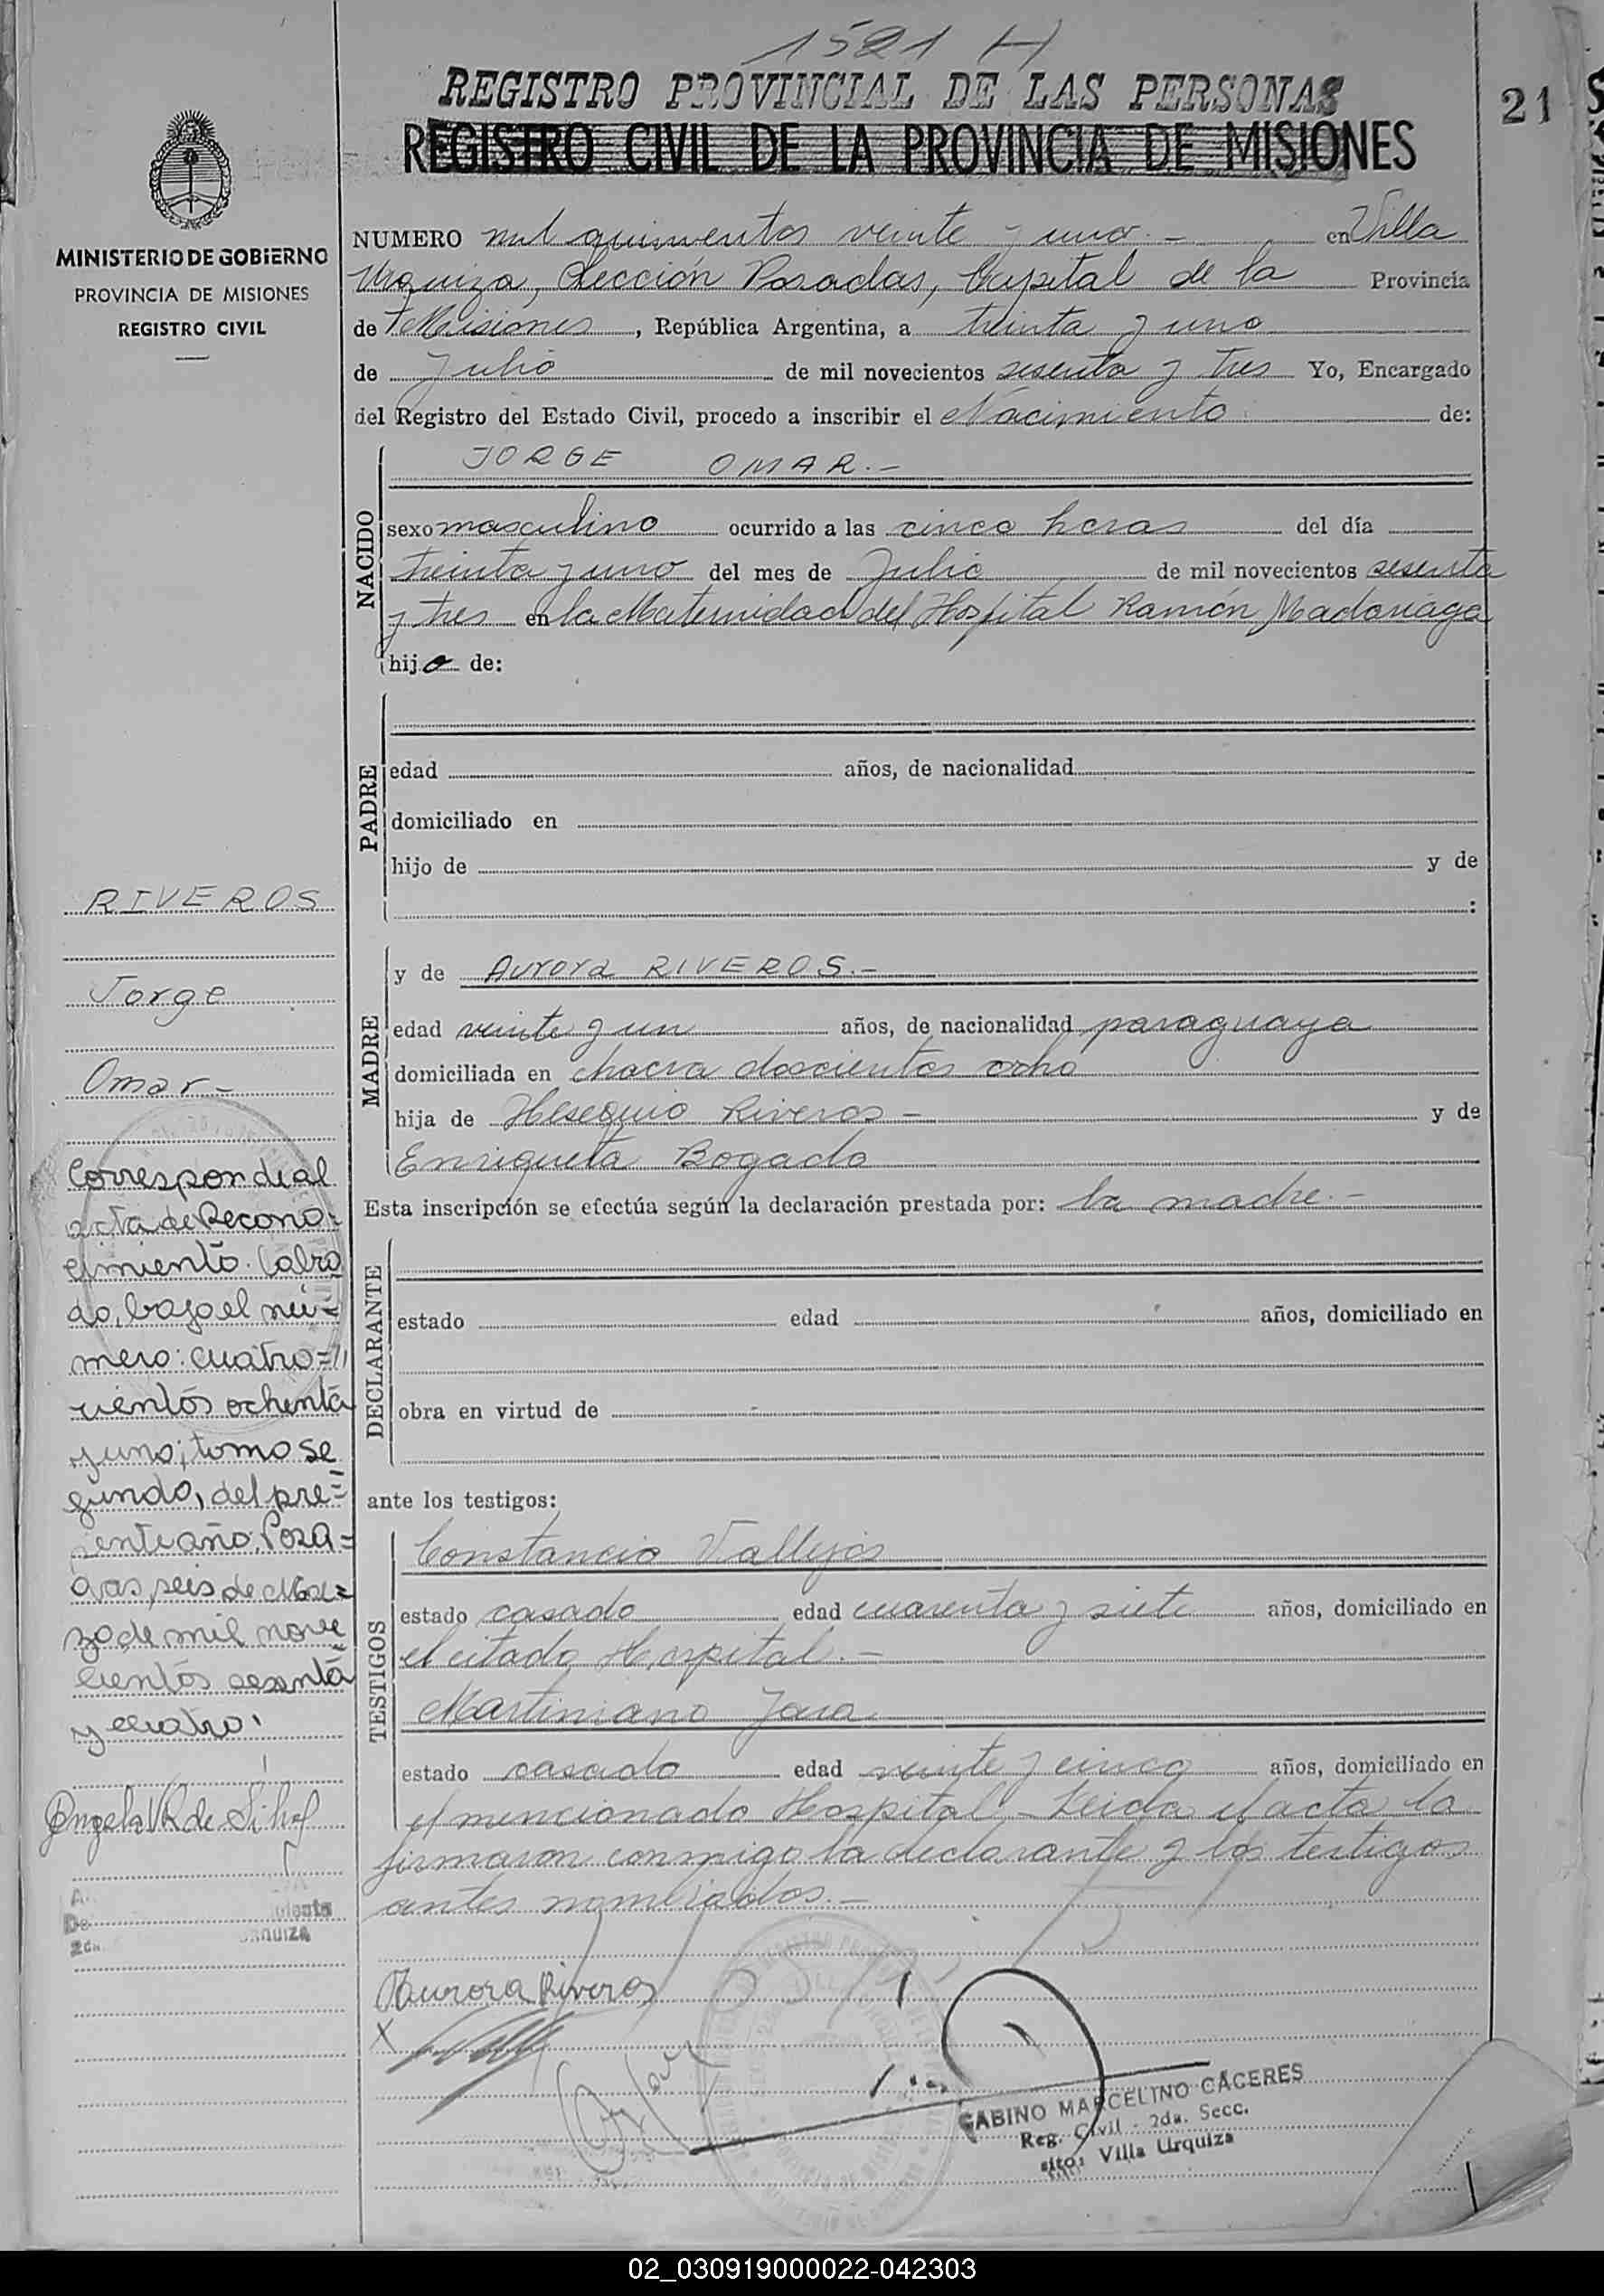 1521 H
REGISTRO PROVINCIAL DE LAS PERSONAS
21
REGISTRO CIVIL DE LA PROVINCIA DE MISIONES
MINISTERIO DE GOBIERNO
PROVINCIA DE MISIONES
REGISTRO CIVIL
NUMERO mil quinientos veinte y uno.- en Villa
Urquiza, Sección Posadas, Capital de la Provincia
de Misiones, República Argentina, a treinta y uno
de Julio de mil novecientos sesenta y tres Yo, Encargado
del Registro del Estado Civil, procedo a inscribir el Nacimiento de:
NACIDO
JORGE OMAR.-
sexo masculino ocurrido a las cinco horas del día
treinta y uno del mes de Julio de mil novecientos sesenta
y tres en la Maternidad del Hospital Ramón Madariaga
hijo de:
PADRE
edad años, de nacionalidad
domiciliado en
hijo de y de
:
MADRE
y de Aurora RIVEROS.-
edad veinte y un años, de nacionalidad paraguaya
domiciliada en chacra doscientos ocho
hija de Hesequio Riveros - y de
Enriqueta Bogado
Esta inscripción se efectúa según la declaración prestada por: la madre.-
DECLARANTE
estado edad años, domiciliado en
obra en virtud de
ante los testigos:
TESTIGOS
Constancio Vallejos
estado casado edad cuarenta y siete años, domiciliado en
el citado Hospital.-
Martiniano Jara
estado casado edad veinte y cinco años, domiciliado en
el mencionado Hospital - Leida el acta la
firmaron conmigo la declarante y los testigos
antes nombrados.-
Aurora Riveros
X
GABINO MARCELINO CÁCERES
Reg. Civil - 2da. Secc.
sito: Villa Urquiza
RIVEROS
Jorge
Omar -
Correspondeal
acta de Recono-
cimiento. Labra
do, bajo el nú=
mero: cuatro=
cientos ochenta
y uno; tomo se
gundo, del pre=
sente año. Posa=
das, seis de Mar=
zo de mil nove
cientos sesenta
y cuatro.
Angela V. R. de
2da
02_030919000022-042303